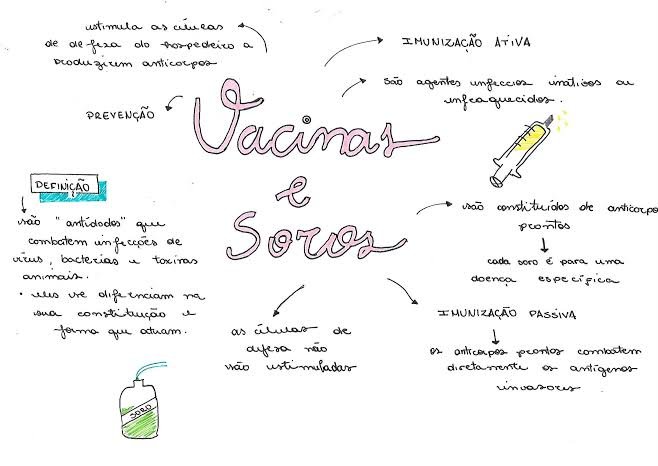 estimula as células
de defesa do hospedeiro a
produzirem anticorpos
IMUNIZAÇÃO ATIVA
são agentes infeccios inativos ou
enfraquecidos.
PREVENÇÃO
Vacinas
e
Soros
DEFINIÇÃO
são "antídodos" que
combatem infecções de
vírus, bactérias e toxinas
animais.
• eles se diferenciam na
sua constituição e
forma que atuam.
são constituídos de anticorpo
prontos
cada soro é para uma
doença específica
IMUNIZAÇÃO PASSIVA
os anticorpos prontos combatem
diretamente os antígenos
invasores.
as células de
defesa não
são estimuladas
SORO